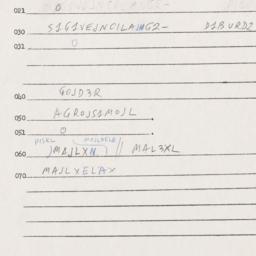 021 O
030 S1G1VEJNCILAMG2- D1BURD2
031 O
040 GOJD3R
050 AGROJS1MOJL
051 O
060 )MAJLXM // MAL3XL
070 MAJLXELAX